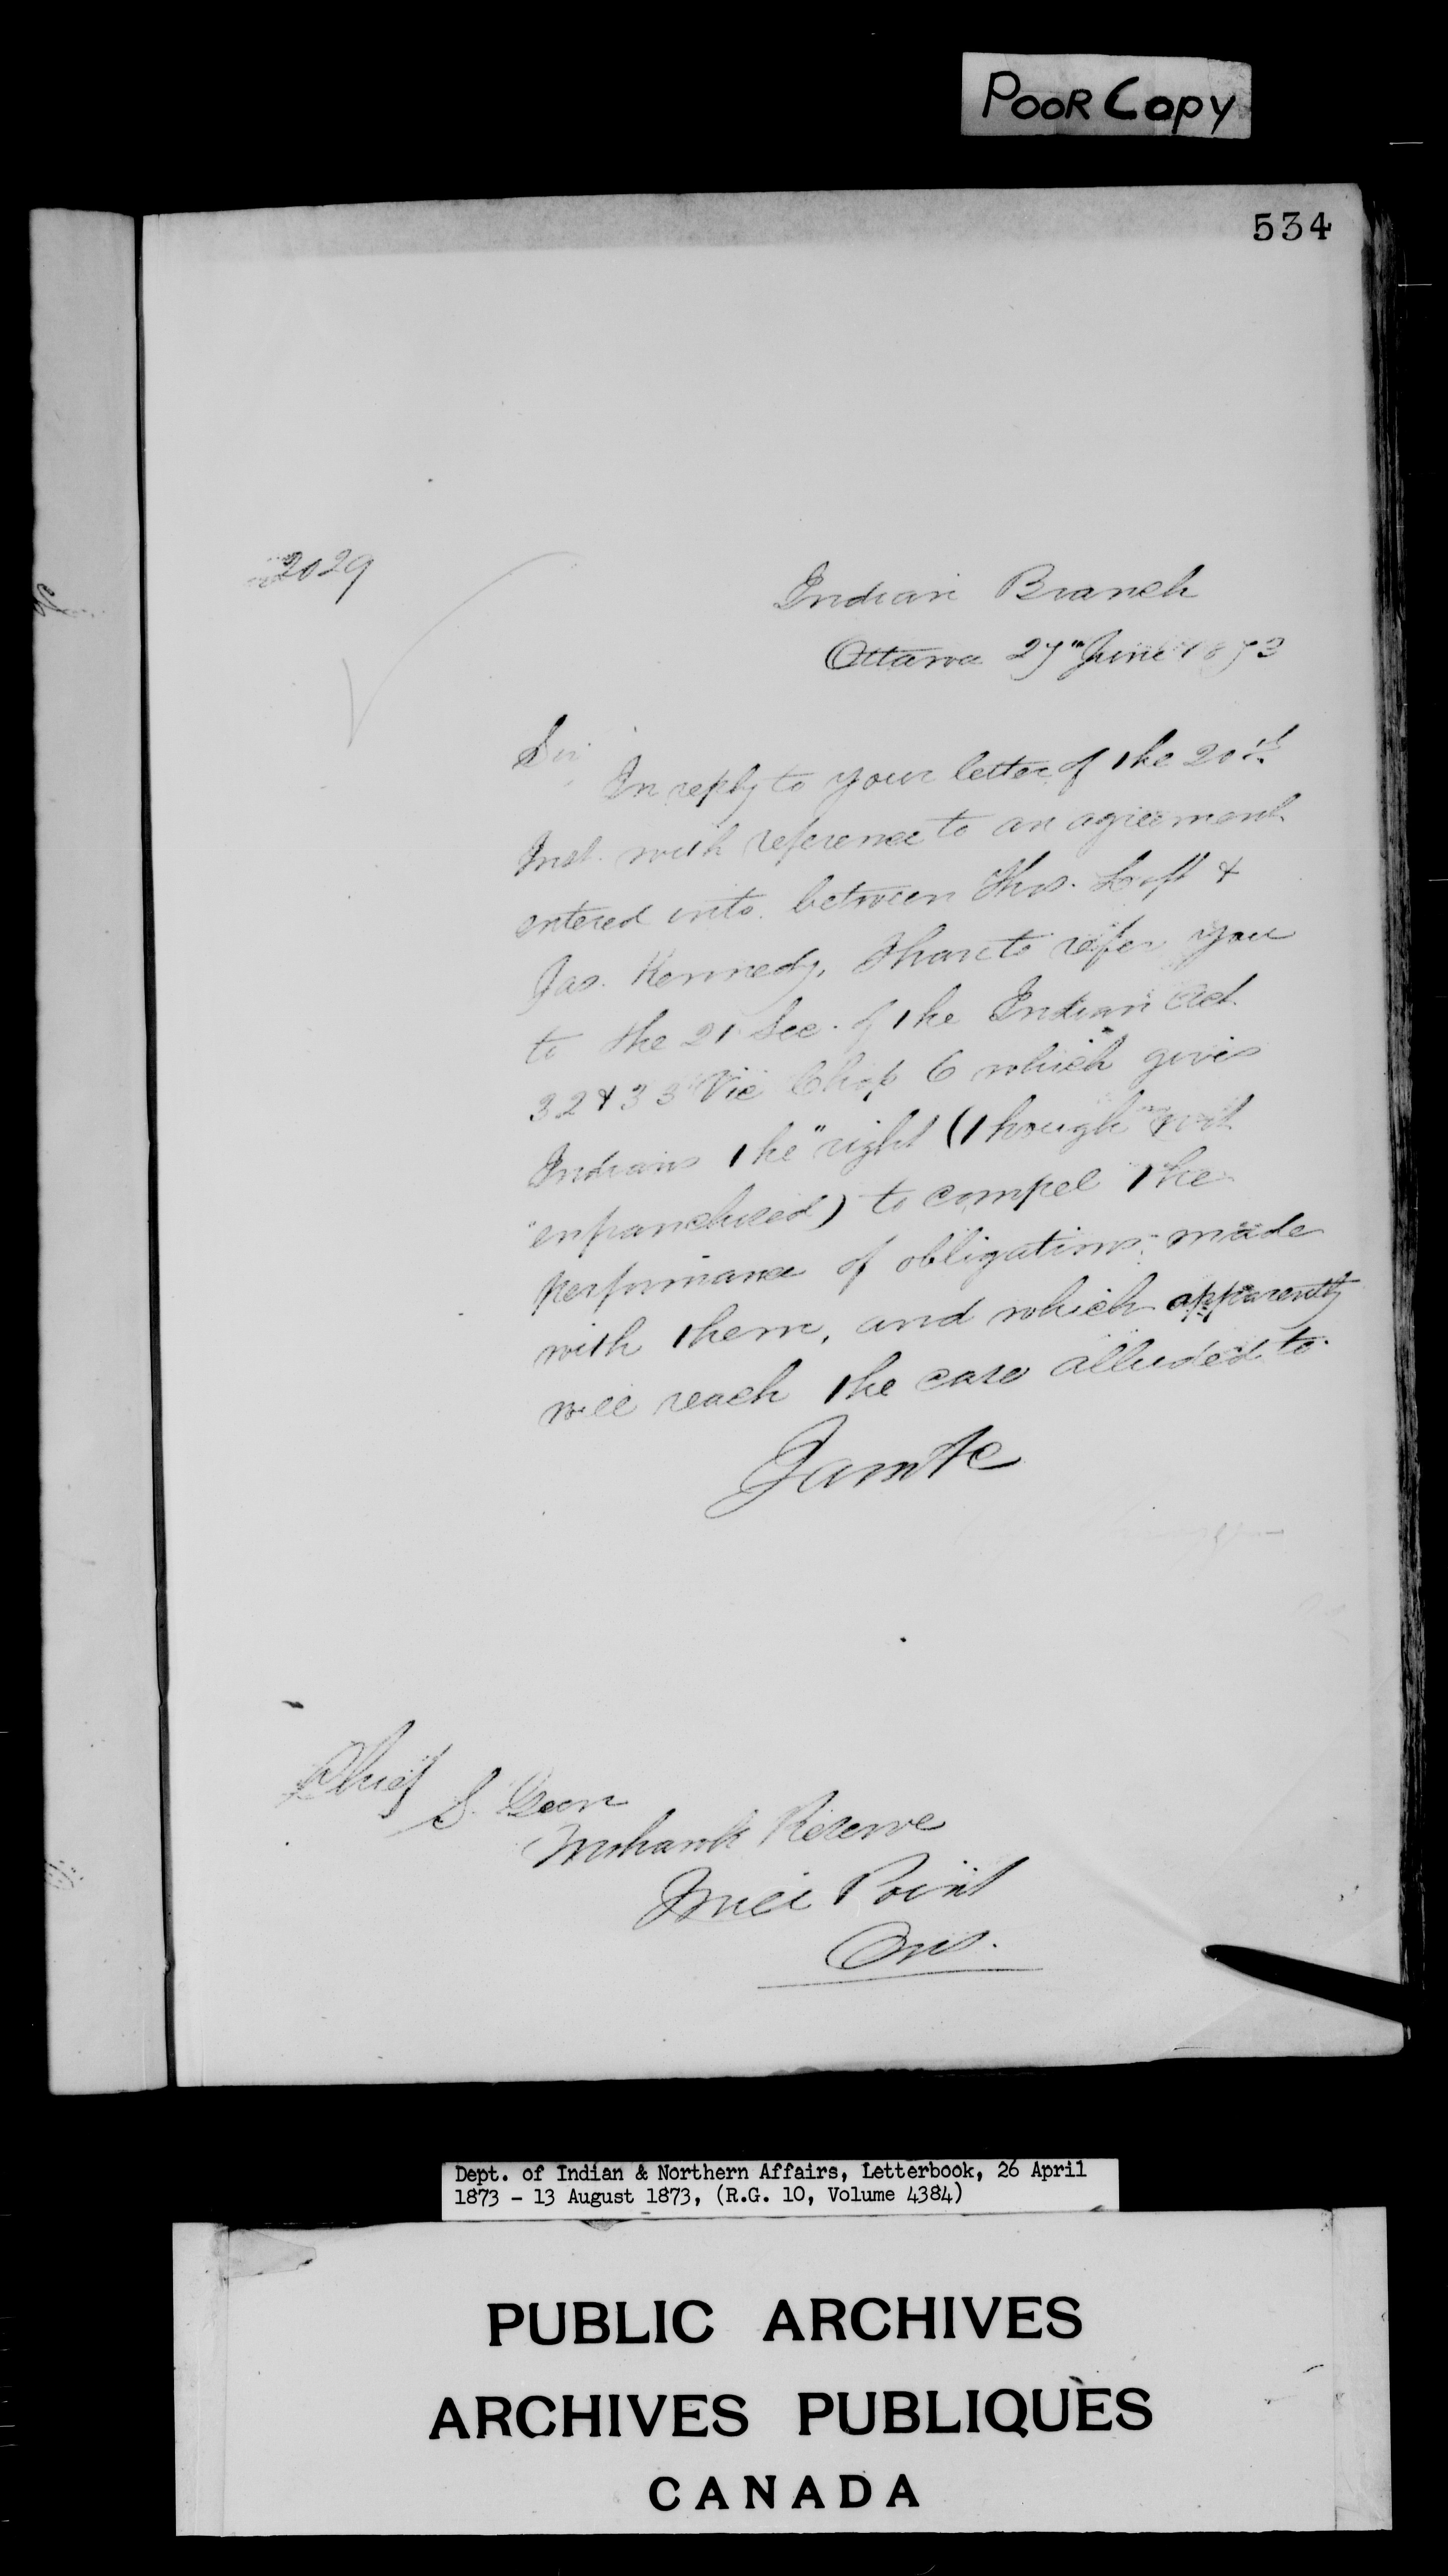 POOR Copy
534
2029
Indian Branch
Ottawa 27th June 1873
Sir,
In reply to your letter of the 20th
Inst. with reference to an agreement
entered into between Thos. Loft &
Jas. Kennedy, I have to refer you
to the 21 Sec. of the Indian Act
32 & 33 Vic Chap 6 which gives
Indians the "right (though not
"enfranchised) to compel the
performance of obligations made
with them, and which apparently
will reach the case alluded to.
I am &c
Chief
S. Green
Mohawk Reserve
Point
Ont.
Dept. of Indian & Northern Affairs, Letterbook, 26 April
1873 - 13 August 1873, (R.G. 10, Volume 4384)
PUBLIC ARCHIVES
ARCHIVES PUBLIQUES
CANADA